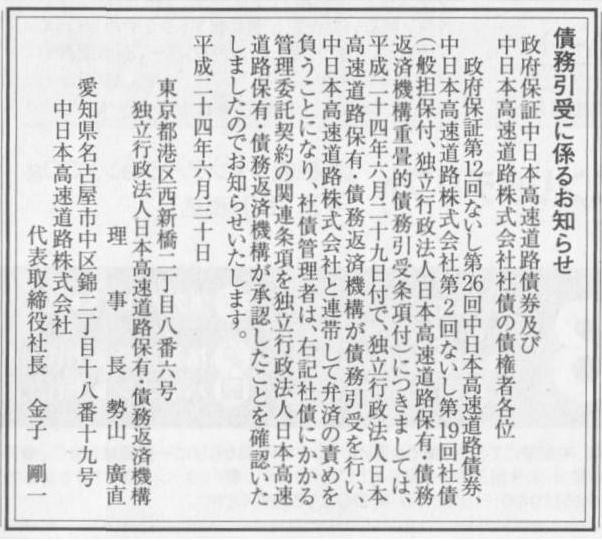 債務引受に係るお知らせ
政府保証中日本高速道路債券及び
中日本高速道路株式会社社債の債権者各位
政府保証第12回ないし第26回中日本高速道路債券
中日本高速道路株式会社第2回ないし第19回社債
（一般担保付、独立行政法人日本高速道路保有・債務
返済機構重畳的債務引受条項付）につきましては、
平成二十四年六月二十九日付で、独立行政法人日本
高速道路保有・債務返済機構が債務引受を行い、
中日本高速道路株式会社と連帯して弁済の責めを
負うことになり、社債管理者は、右記社債にかかる
管理委託契約の関連条項を独立行政法人日本高速
道路保有・債務返済機構が承認したことを確認いた
しましたのでお知らせいたします。
平成二十四年六月三十日
東京都港区西新橋二丁目八番六号
独立行政法人日本高速道路保有・債務返済機構
理事長 勢山廣直
愛知県名古屋市中区錦二丁目十八番十九号
中日本高速道路株式会社
代表取締役社長 金子 剛一